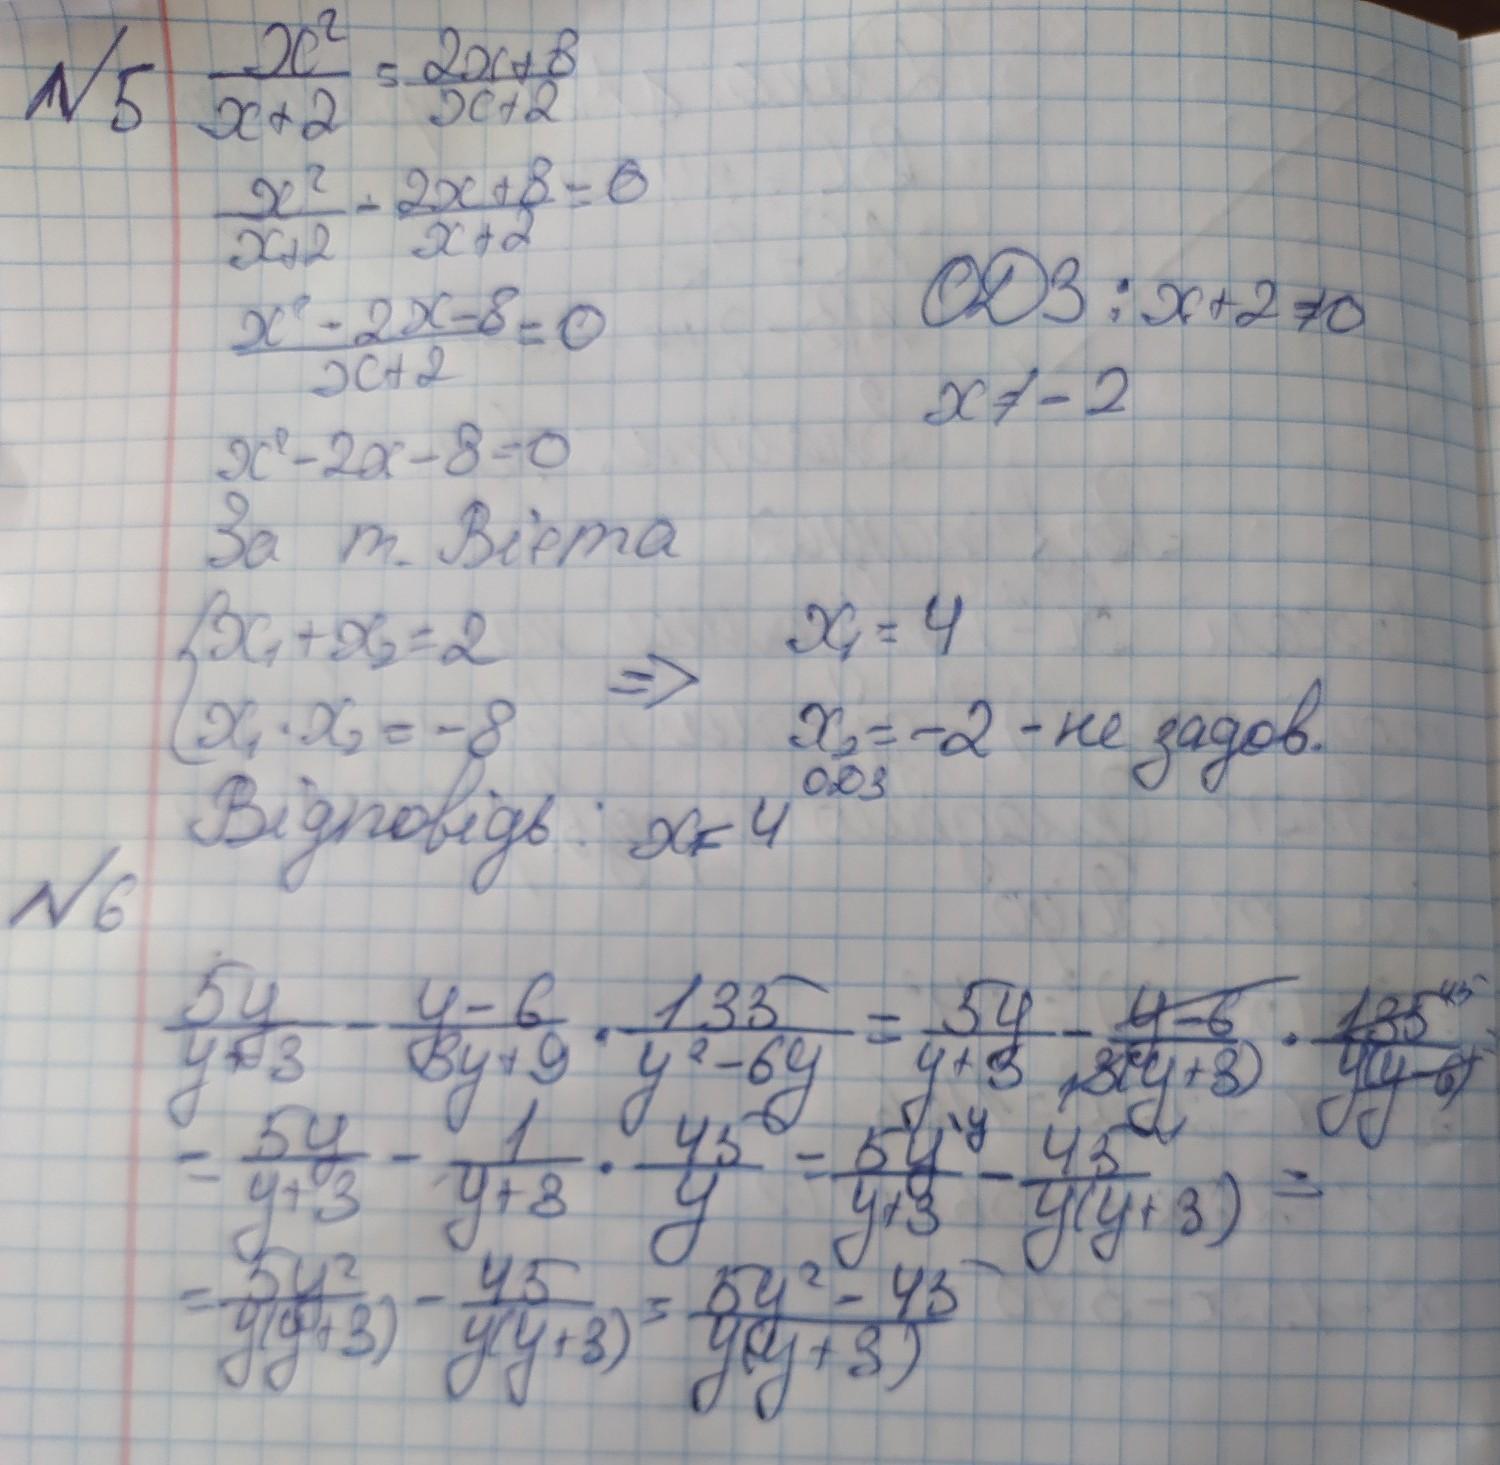 №5 x²/(x+2) = (2x+8)/(x+2)
x²/(x+2) - (2x+8)/(x+2) = 0
(x²-2x-8)/(x+2) = 0
ОДЗ: x+2≠0
x≠-2
x²-2x-8=0
За т. Вієта
{x₁+x₂=2
x₁·x₂=-8
=> x₁=4
x₂=-2 - не задов.
ОДЗ
Відповідь: x=4
№6
5y/(y+3) - (y-6)/(3y+9) · 135/(y²-6y) = 5y/(y+3) - (y-6)/(3(y+3)) · 135 45/(y(y-6))
= 5y/(y+3) - 1/(y+3) · 45/y = 5y \y/(y+3) - 45/(y(y+3)) =
= 5y²/(y(y+3)) - 45/(y(y+3)) = (5y²-45)/(y(y+3))